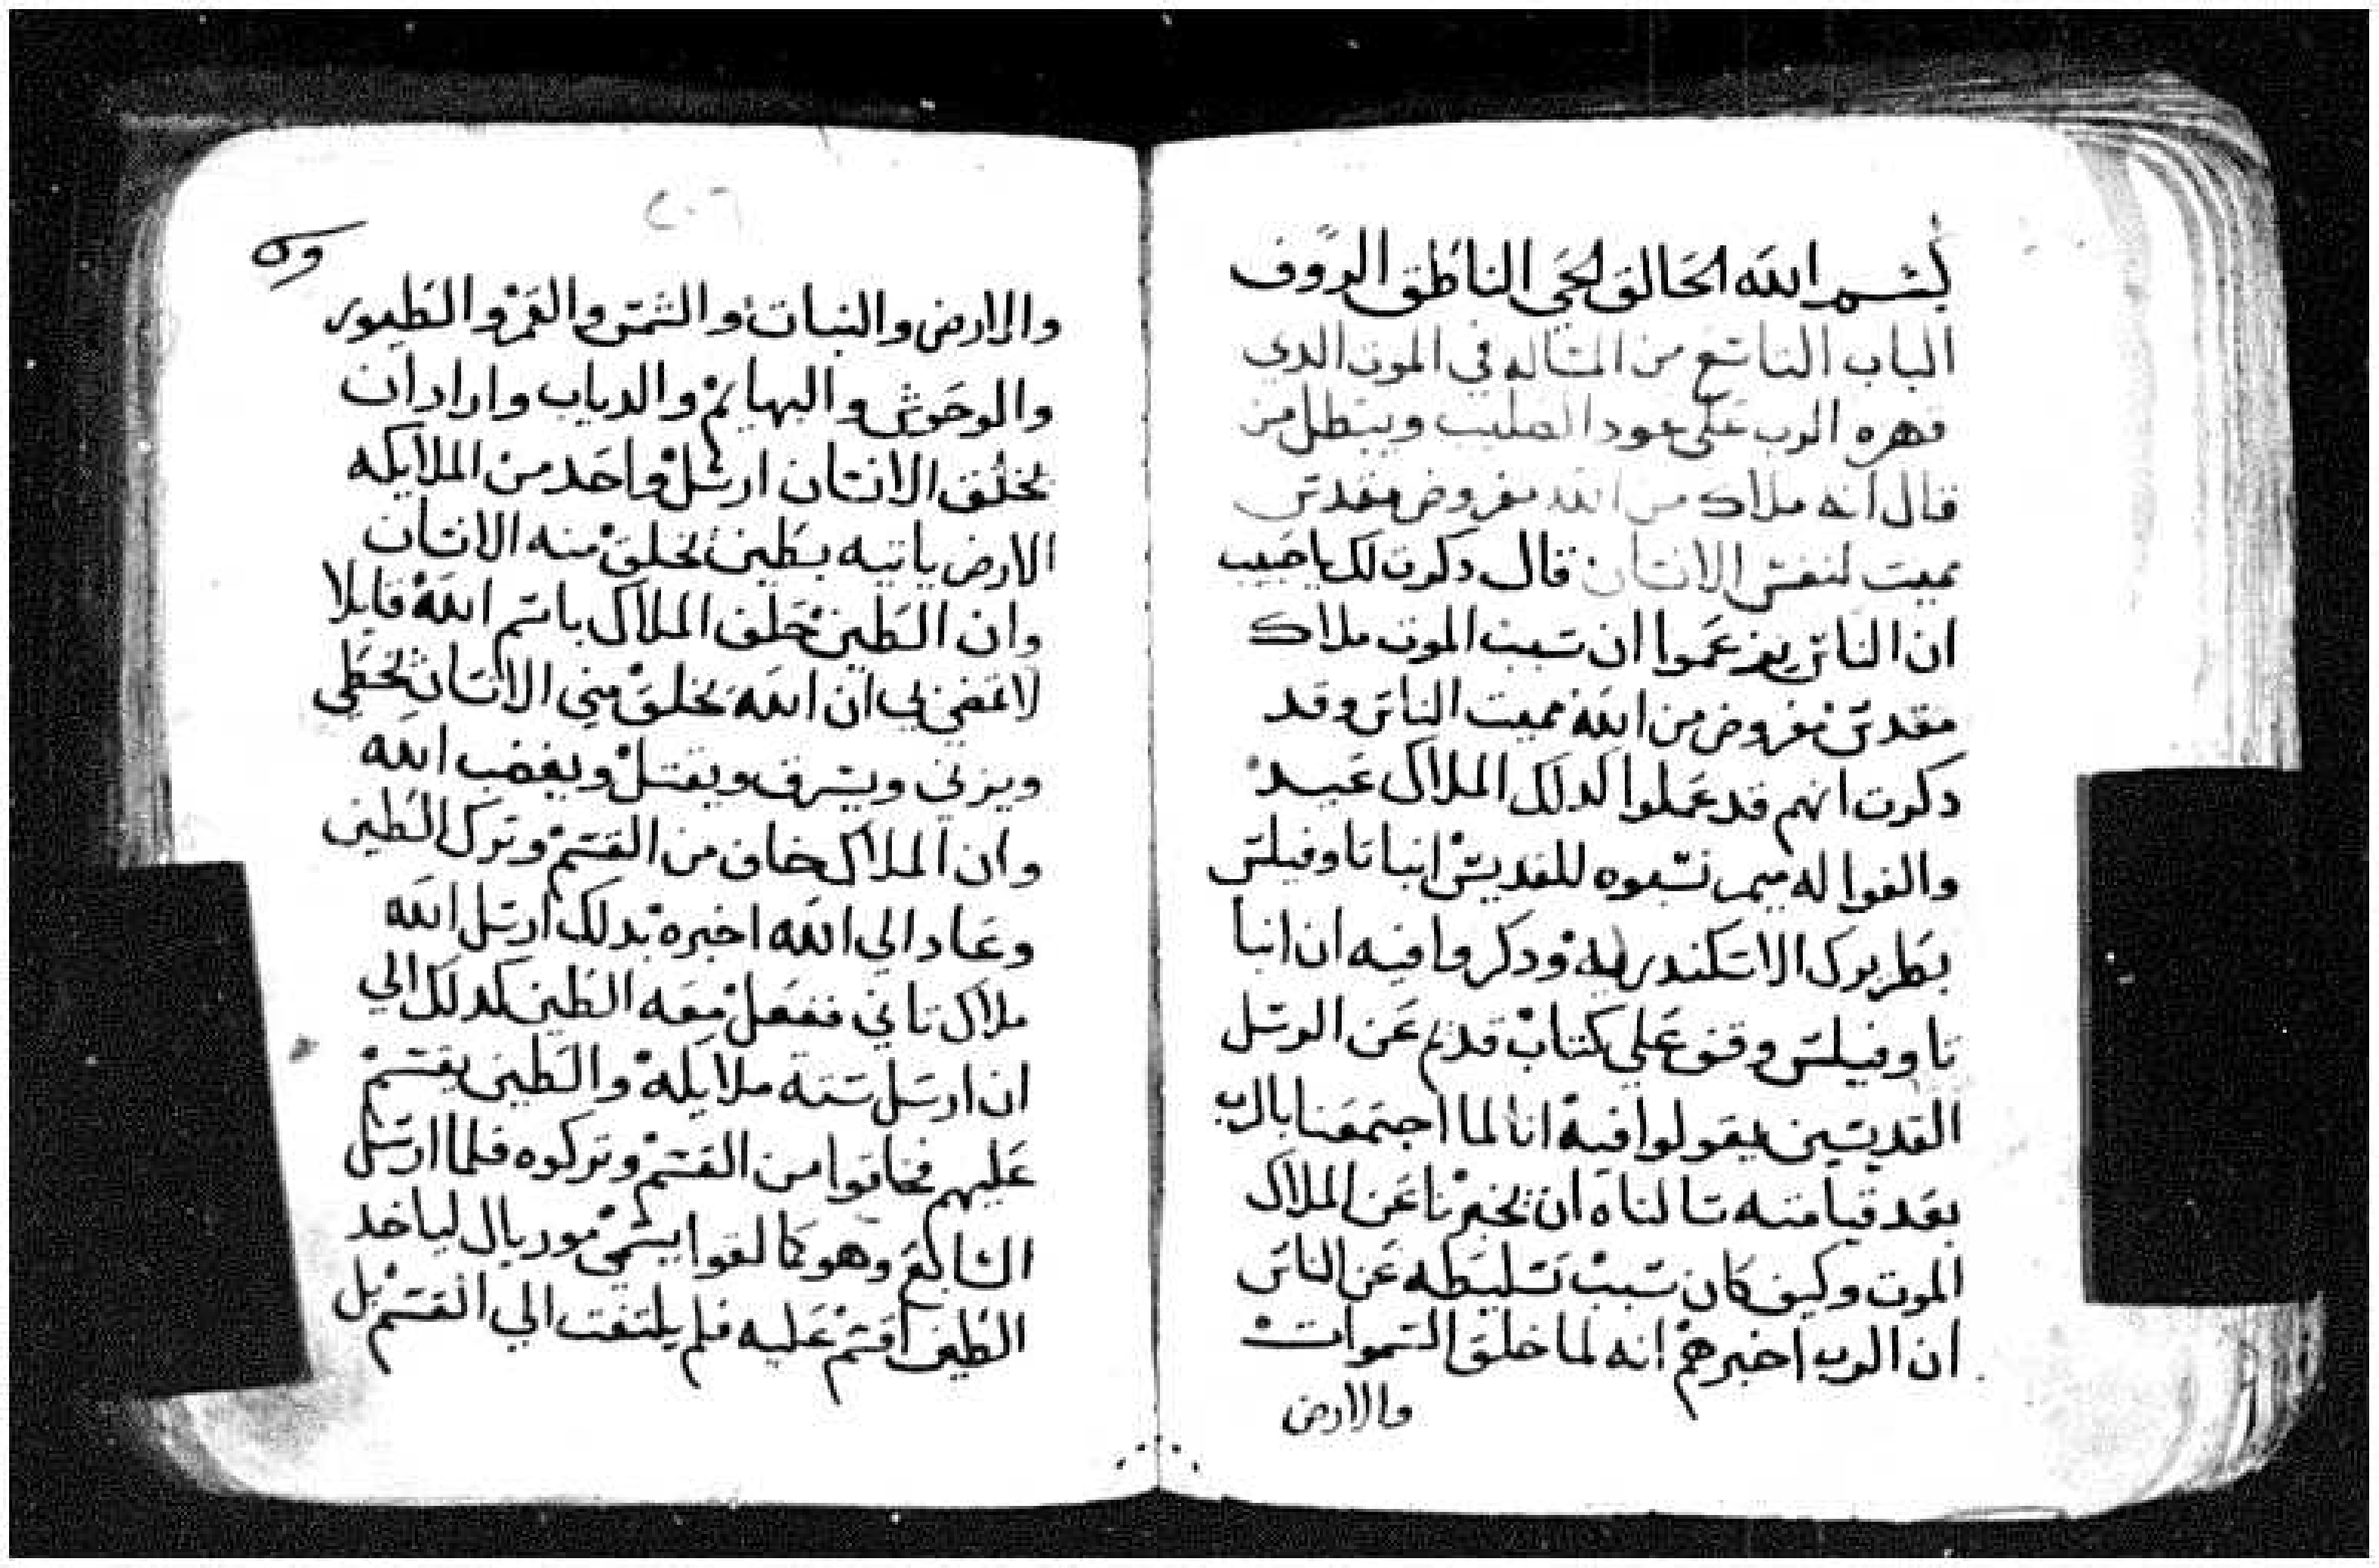 بسم الله الخالق الحي الناطق الروف
الباب التاسع من المقاله في الموت الدي
قهره الرب علي عود الصليب ويبطل من
قال انه ملاك من الله مفروض مقدس
مميت لنفس الانسان قال دكرت لك يا حبيب
ان الناس يزعموا ان سبب الموت ملاك
مقدس مفروض من الله مميت الناس وقد
دكرت انهم قد عملوا لدلك الملاك عيد
والفوا له ميمر نسبوه للقديس انبا تاوفيلس
بطريرك الاسكندريه ودكروا فيه ان انبا
تاوفيلس وقف علي كتاب قديم عن الرسل
القديسين يقولوا فيه انا لما اجتمعنا بالرب
بعد قيامته سالناه ان يخبرنا عن الملاك
الموت وكيف كان سبب تسليطه عن الناس
ان الرب اخبرهم انه لما خلق السموات
والارض
٢٠٦
والارض والنبات والشمس والقمر والطيور
والوحوش والبهايم والدباب واراد ان
يخلق الانسان ارسل واحد من الملايكه
الارض ياتيه بطين يخلق منه الانسان
وان الطين حلف الملاك باسم الله قايلا
لا تمضي بي ان الله يخلق مني الانسان يخطي
ويزني ويسرق ويقتل ويغضب الله
وان الملاك خاف من القسم وترك الطين
وعاد الي الله اخبره بدلك ارسل الله
ملاك تاني ففعل معه الطين كدلك الي
ان ارسل ستة ملايكه والطين يقسم
عليهم فخافوا من القسم وتركوه فلما ارسل
السابع وهو كما لقوا يسمي موريال لياخد
الطين اقسم عليه فلم يلتفت الي القسم بل